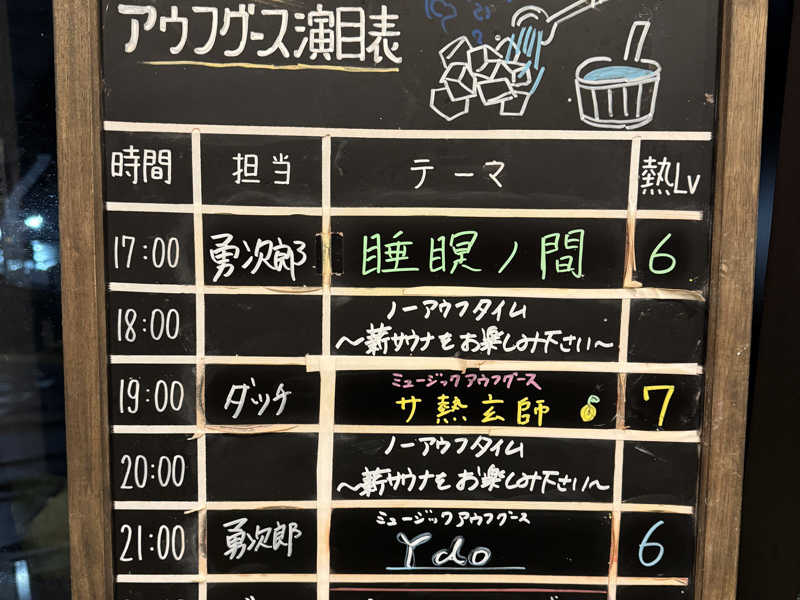 アウフグース演目表
時間 担当 テーマ 熱Lv
17:00 勇次郎 睡瞑ノ間 6
18:00 ノーアウフタイム
〜薪サウナをお楽しみ下さい〜
ミュージックアウフグース
19:00 ダッチ サ熱玄師 7
20:00 ノーアウフタイム
〜薪サウナをお楽しみ下さい〜
ミュージックアウフグース
21:00 勇次郎 Ydo 6